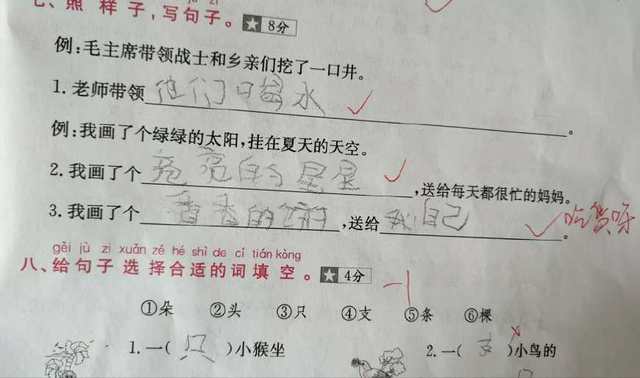 七、照样子,写句子。 ★ 8分
例:毛主席带领战士和乡亲们挖了一口井。
1. 老师带领他们喝水。
例:我画了个绿绿的太阳,挂在夏天的天空。
2. 我画了个亮亮的星星,送给每天都很忙的妈妈。
3. 我画了个香香的饼,送给我自己。 吃货呀
gěi jù zi xuǎn zé hé shì de cí tián kòng
八、给句子选择合适的词填空。 ★ 4分 -1
①朵 ②头 ③只 ④支 ⑤条 ⑥棵
1. 一(只)小猴坐 2. 一(支)小鸟的